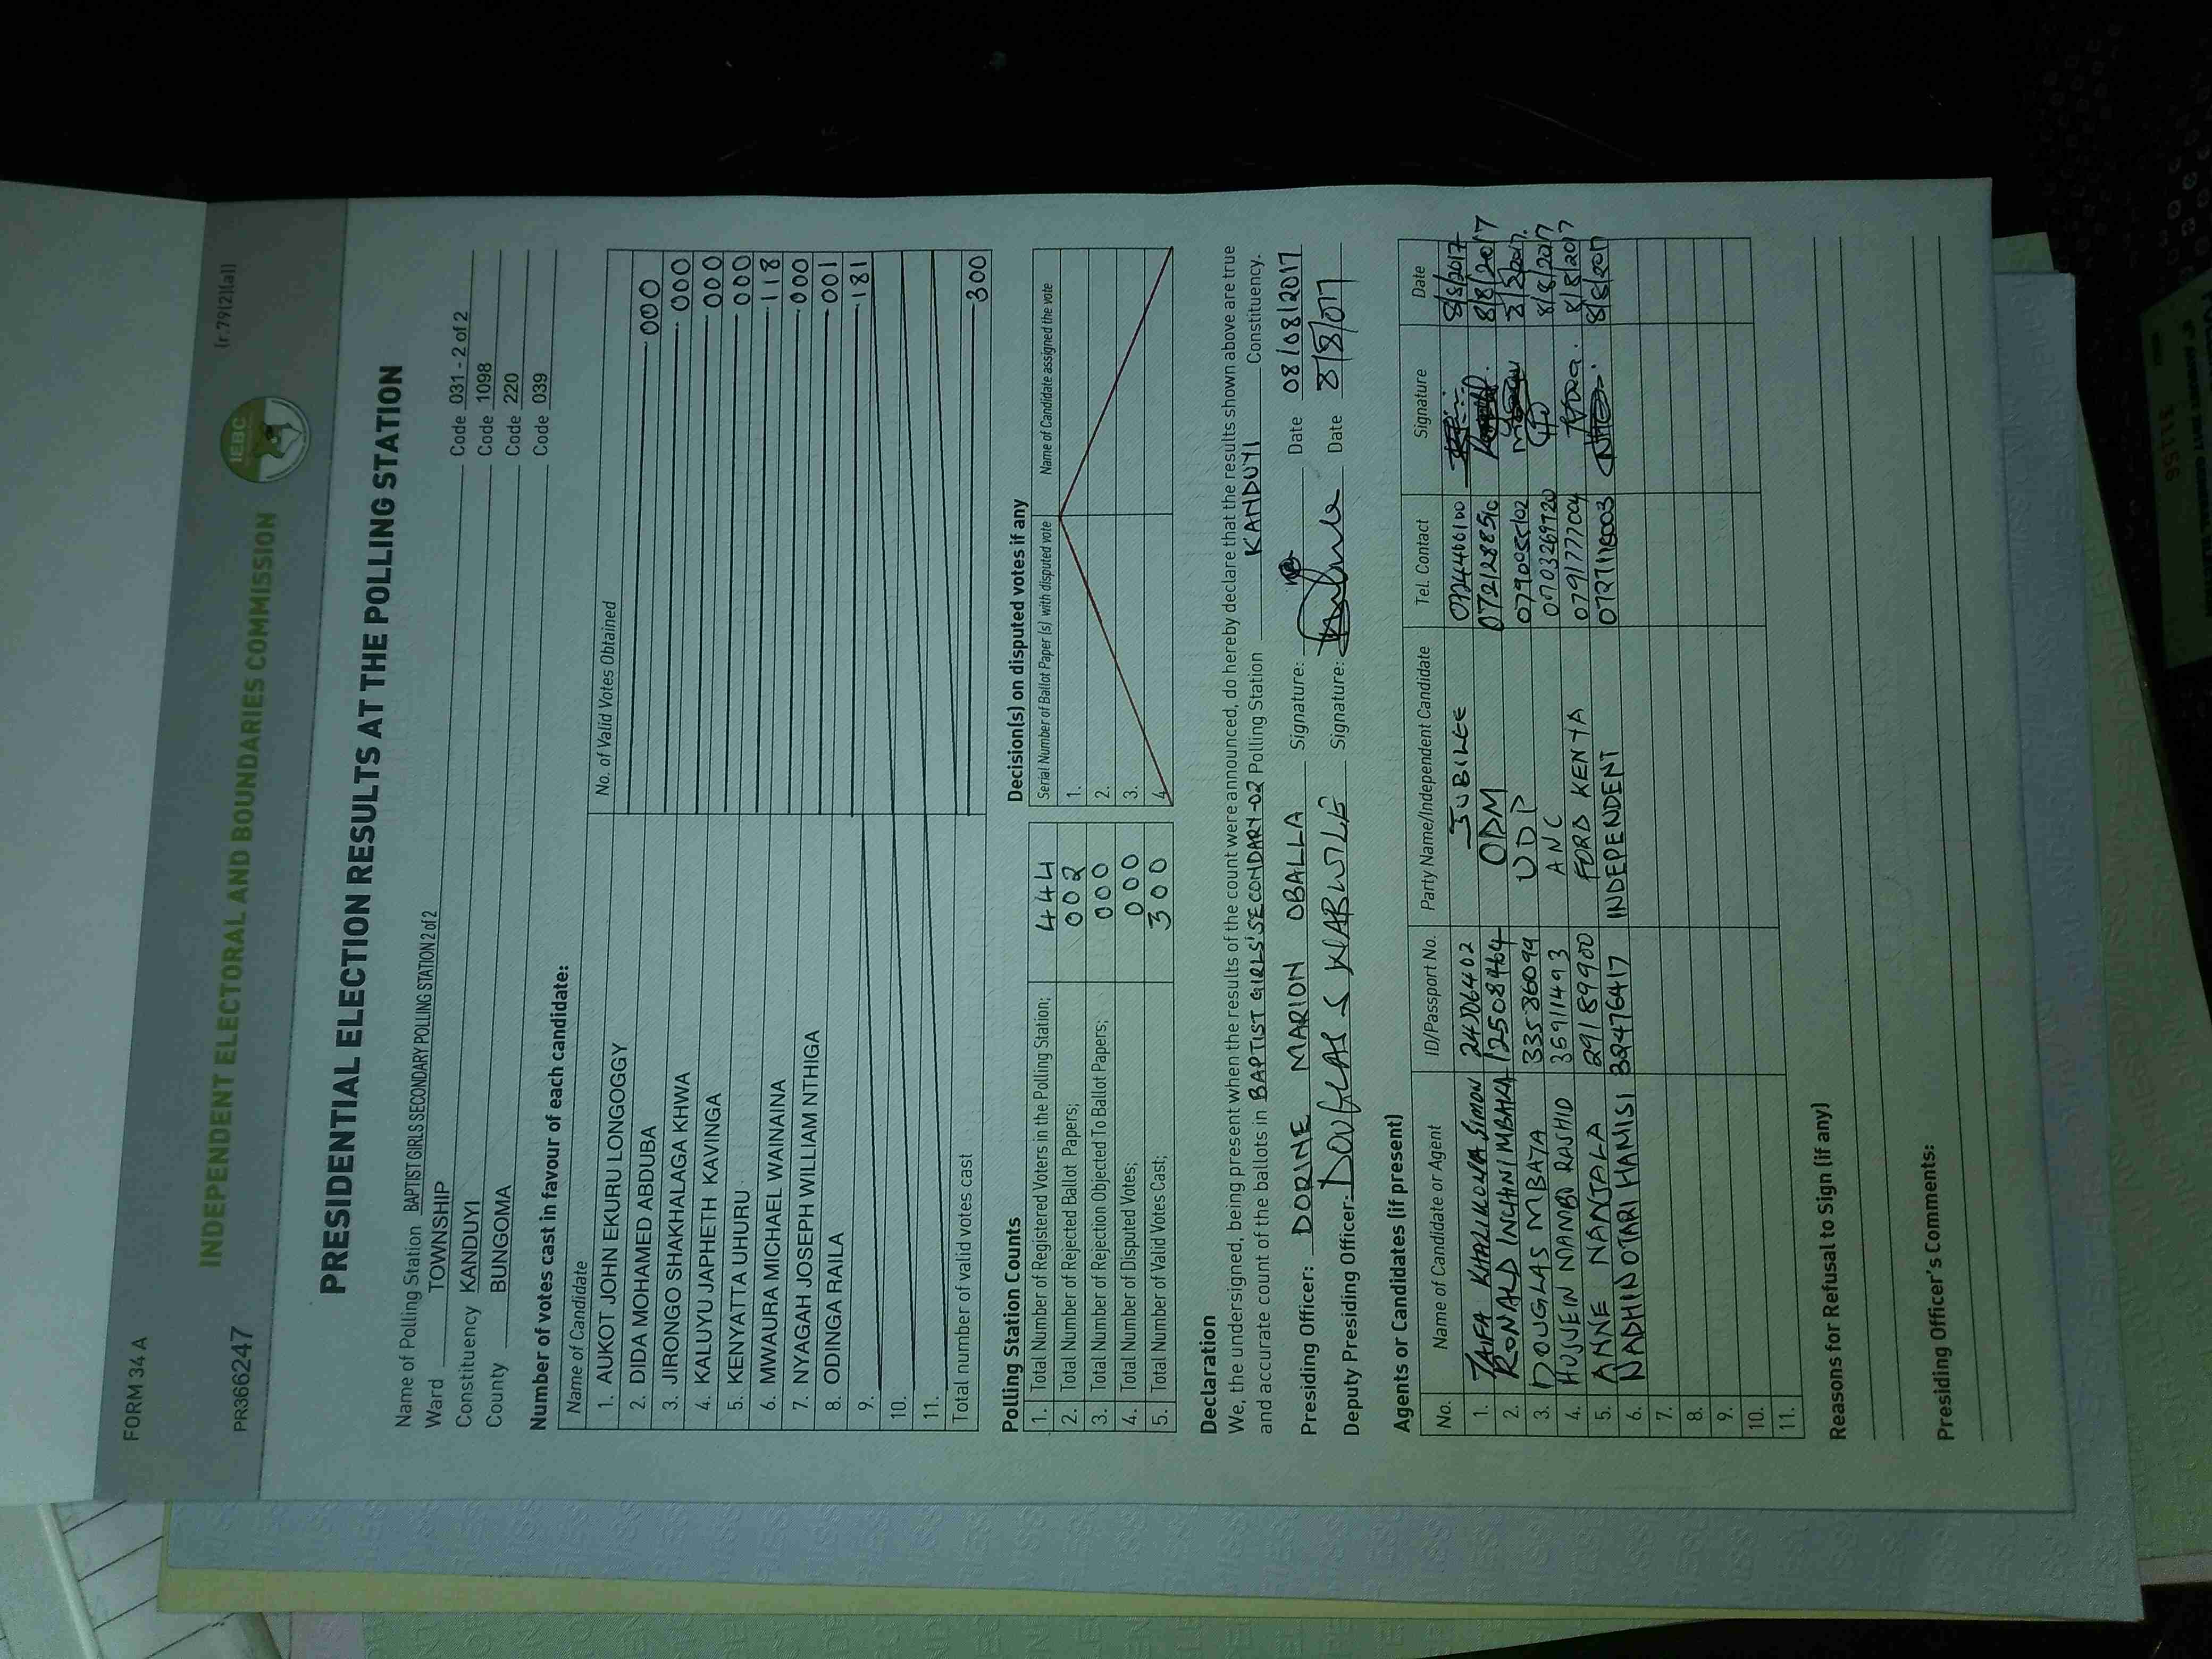 FORM 34 A
(r.79(2)(a))
INDEPENDENT ELECTORAL AND BOUNDARIES COMMISSION
IEBC
PR366247
PRESIDENTIAL ELECTION RESULTS AT THE POLLING STATION
Name of Polling Station BAPTIST GIRLS SECONDARY POLLING STATION 2 of 2 Code 031 - 2 of 2
Ward TOWNSHIP Code 1098
Constituency KANDUYI Code 220
County BUNGOMA Code 039
Number of votes cast in favour of each candidate:
Name of Candidate No. of Valid Votes Obtained
1. AUKOT JOHN EKURU LONGOGGY 000
2. DIDA MOHAMED ABDUBA 000
3. JIRONGO SHAKHALAGA KHWA 000
4. KALUYU JAPHETH KAVINGA 000
5. KENYATTA UHURU 118
6. MWAURA MICHAEL WAINAINA 000
7. NYAGAH JOSEPH WILLIAM NTHIGA 001
8. ODINGA RAILA 181
9.
10.
11.
Total number of valid votes cast 300
Polling Station Counts
1. Total Number of Registered Voters in the Polling Station; 444
2. Total Number of Rejected Ballot Papers; 002
3. Total Number of Rejection Objected To Ballot Papers; 000
4. Total Number of Disputed Votes; 000
5. Total Number of Valid Votes Cast; 300
Decision(s) on disputed votes if any
Serial Number of Ballot Paper (s) with disputed vote Name of Candidate assigned the vote
1.
2.
3.
4.
Declaration
We, the undersigned, being present when the results of the count were announced, do hereby declare that the results shown above are true
and accurate count of the ballots in BAPTIST GIRLS' SECONDARY-02 Polling Station KANDUYI Constituency.
Presiding Officer: DORINE MARION OBALLA Signature: Date 08/08/2017
Deputy Presiding Officer: DOUGLAS S Signature: Date 8/8/017
Agents or Candidates (if present)
No. Name of Candidate or Agent ID/Passport No. Party Name/Independent Candidate Tel. Contact Signature Date
1. SIMON JUBILEE 8/8/2017
2. RONALD 12508464 ODM 8/8/2017
3. DOUGLAS MBATA UDP 8/8/2017
4. HUSSEIN RASHID 36911493 ANC 0703269720 8/8/2017
5. ANNE NANJALA 29189900 FORD KENYA 0791777004 8/8/2017
6. HAMISI 32476417 INDEPENDENT 8/8/2017
7.
8.
9.
10.
11.
Reasons for Refusal to Sign (if any)
Presiding Officer's Comments: